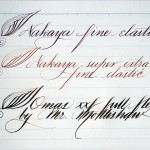 Nakaya fine elastic
Nakaya super extra
fine elastic
Omas xxf full flex
by Mr